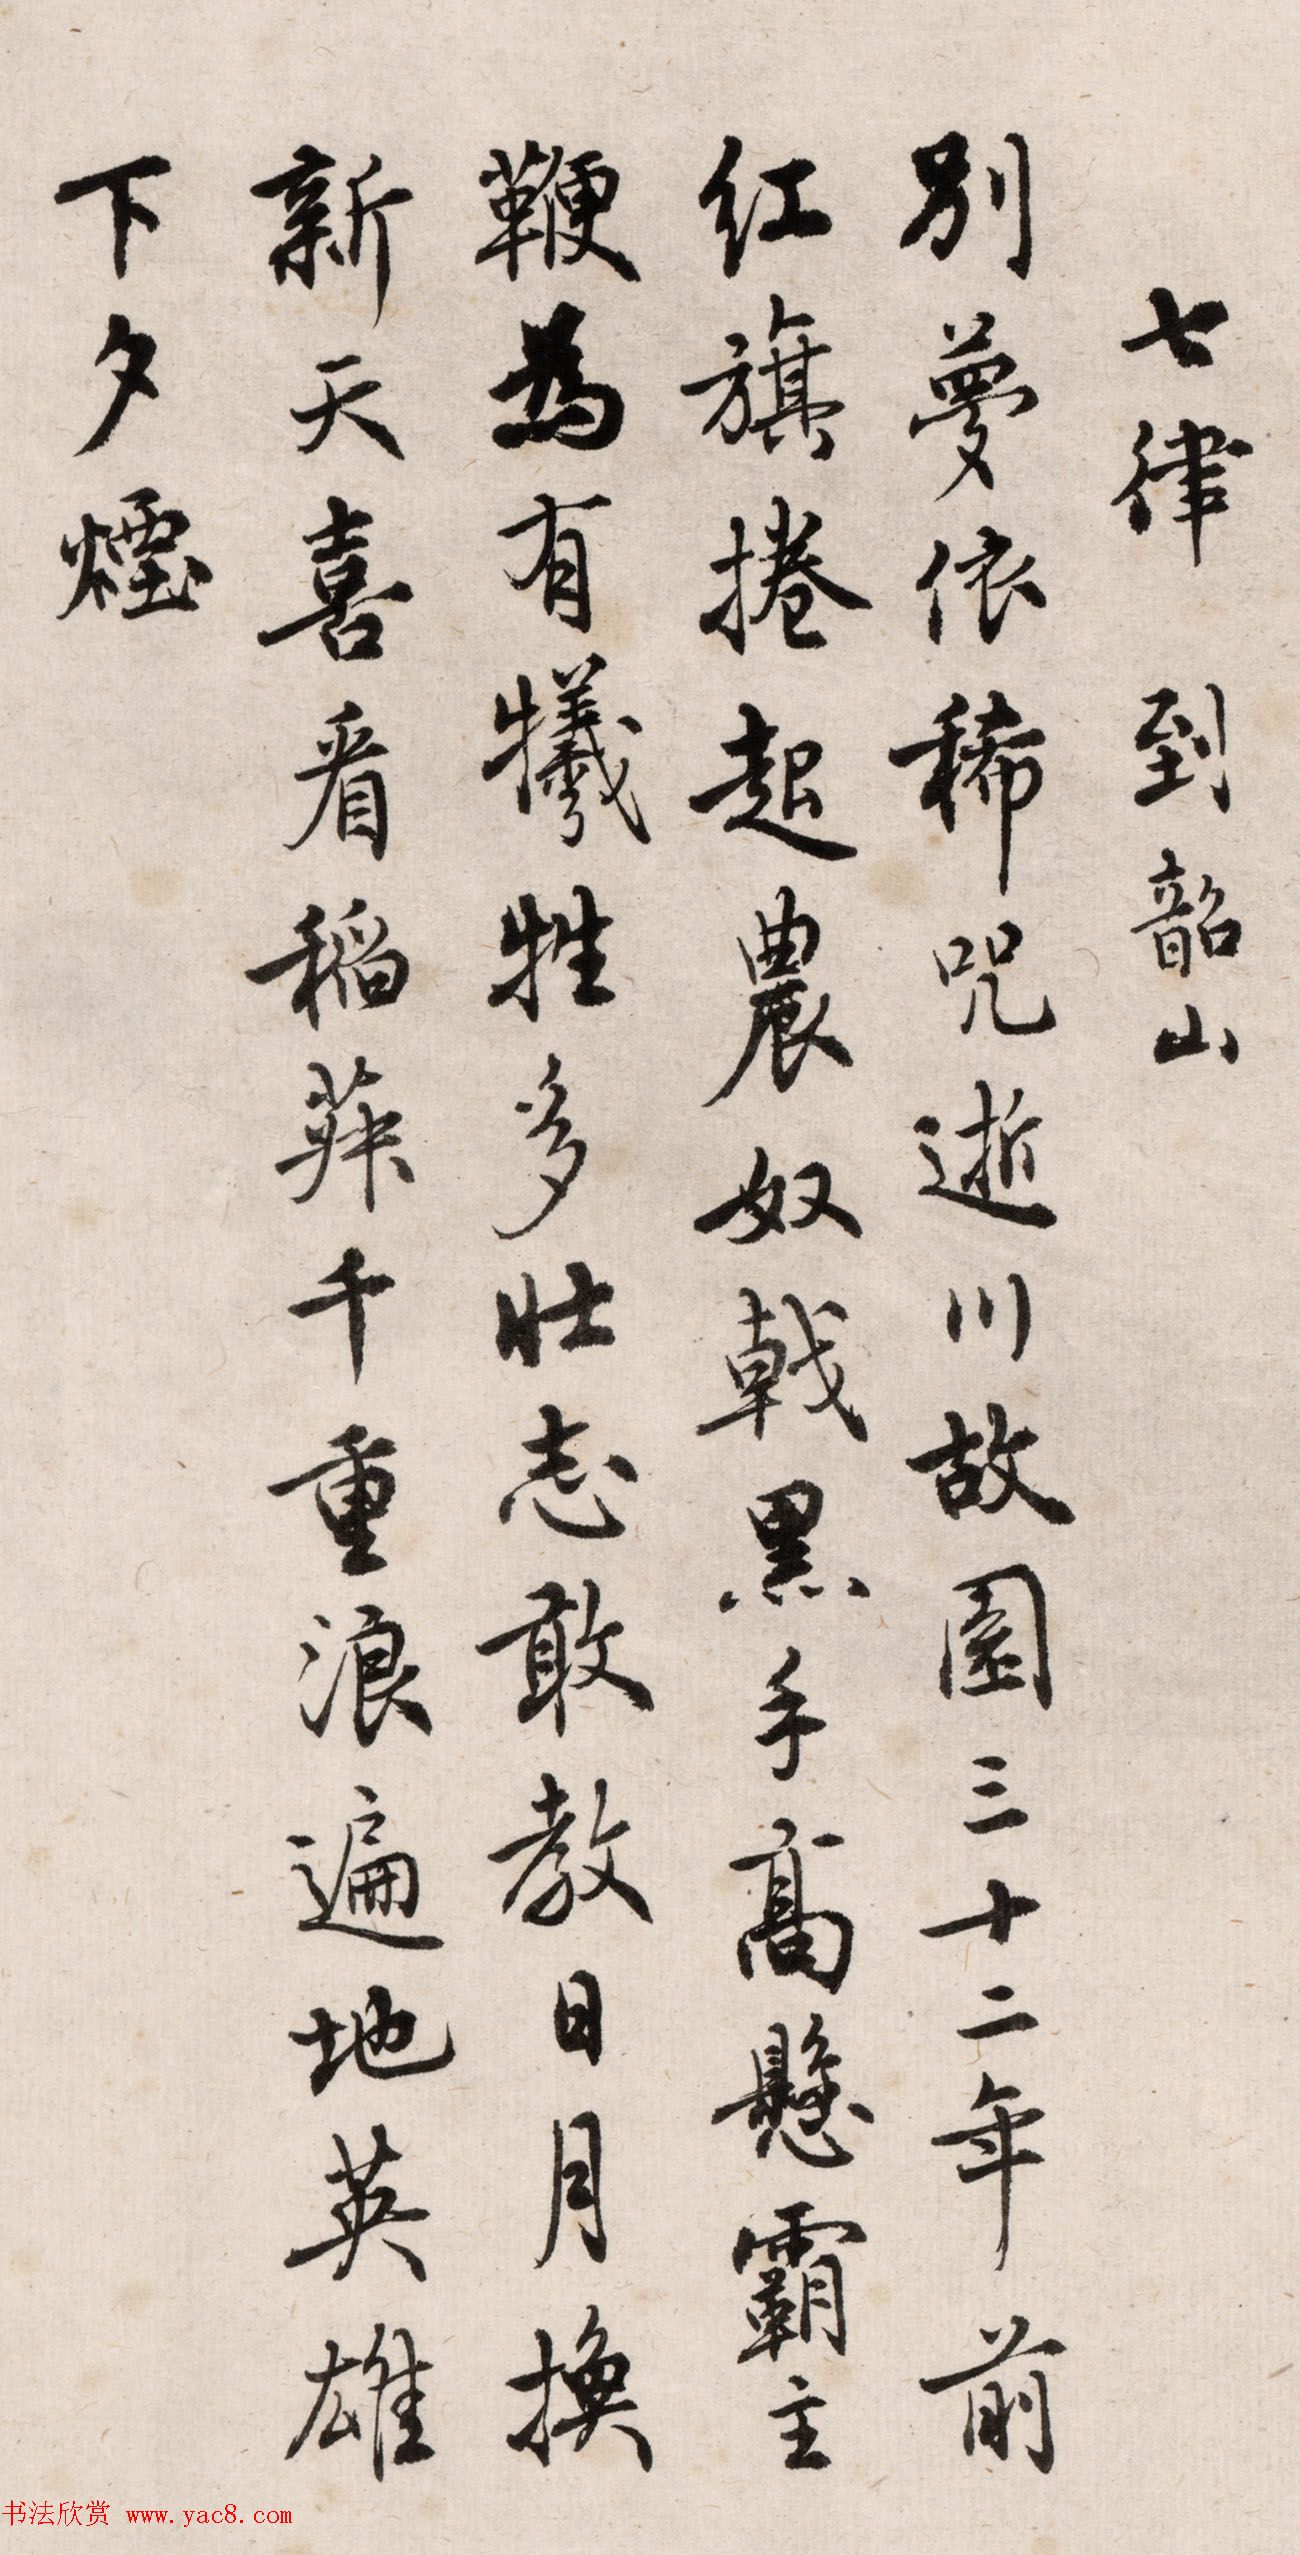 七律 到韶山
別夢依稀咒逝川故園三十二年前
红旗捲起農奴戟黑手髙懸霸主
鞭為有犧牲多壮志敢教日月換
新天喜看稻菽千重浪遍地英雄
下夕煙
书法欣赏 www.yac8.com